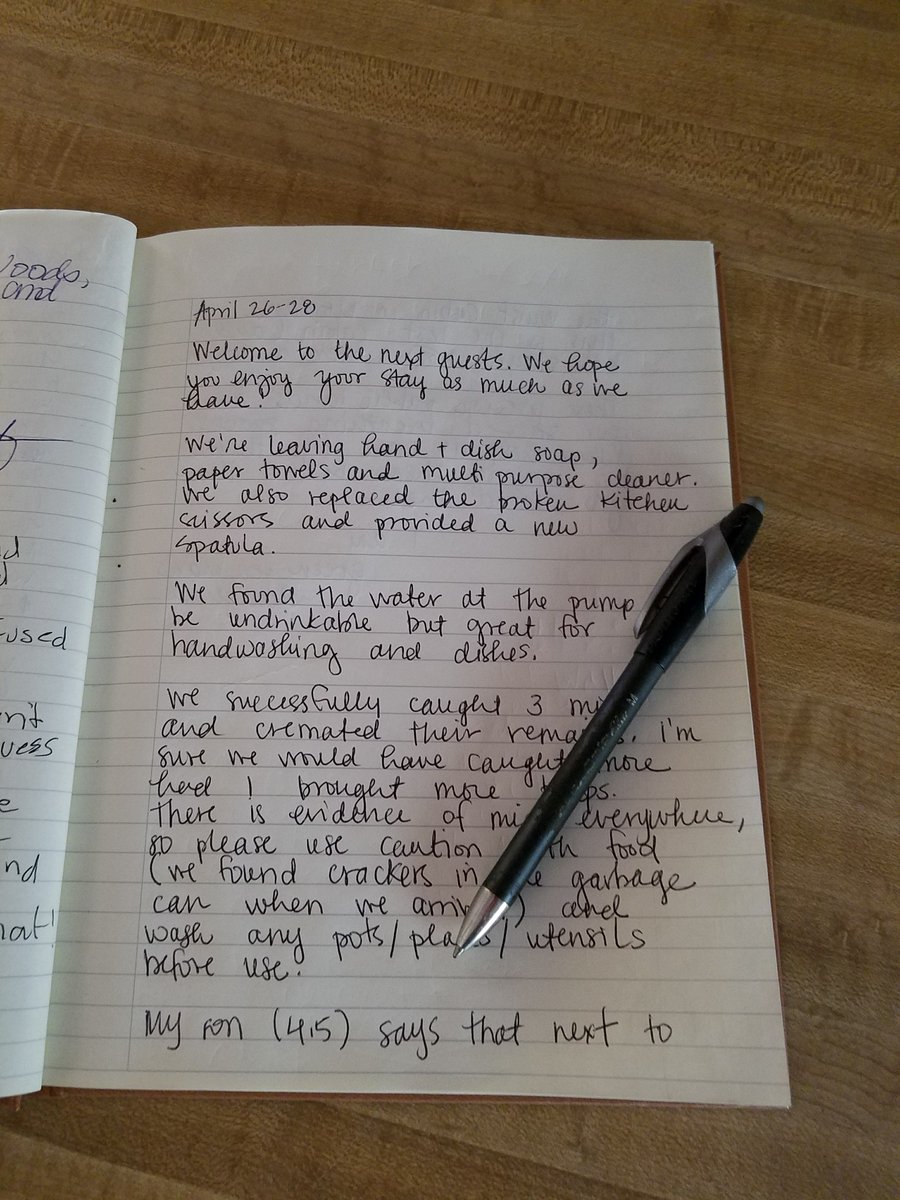 Woods,
and
d
d
fused
n't
uess
e
nd
hat!
April 26-28
Welcome to the next guests. We hope
you enjoy your stay as much as we
have!
We're leaving hand + dish soap,
paper towels and multi purpose cleaner.
We also replaced the broken kitchen
scissors and provided a new
spatula.
We found the water at the pump
be undrinkable but great for
handwashing and dishes.
We successfully caught 3 mi
and cremated their remains. I'm
sure we would have caught more
had I brought more ps.
There is evidence of mi everywhere,
so please use caution th food
(we found crackers in e garbage
can when we arriv) and
wash any pots/plates/utensils
before use.
My son (4.5) says that next to